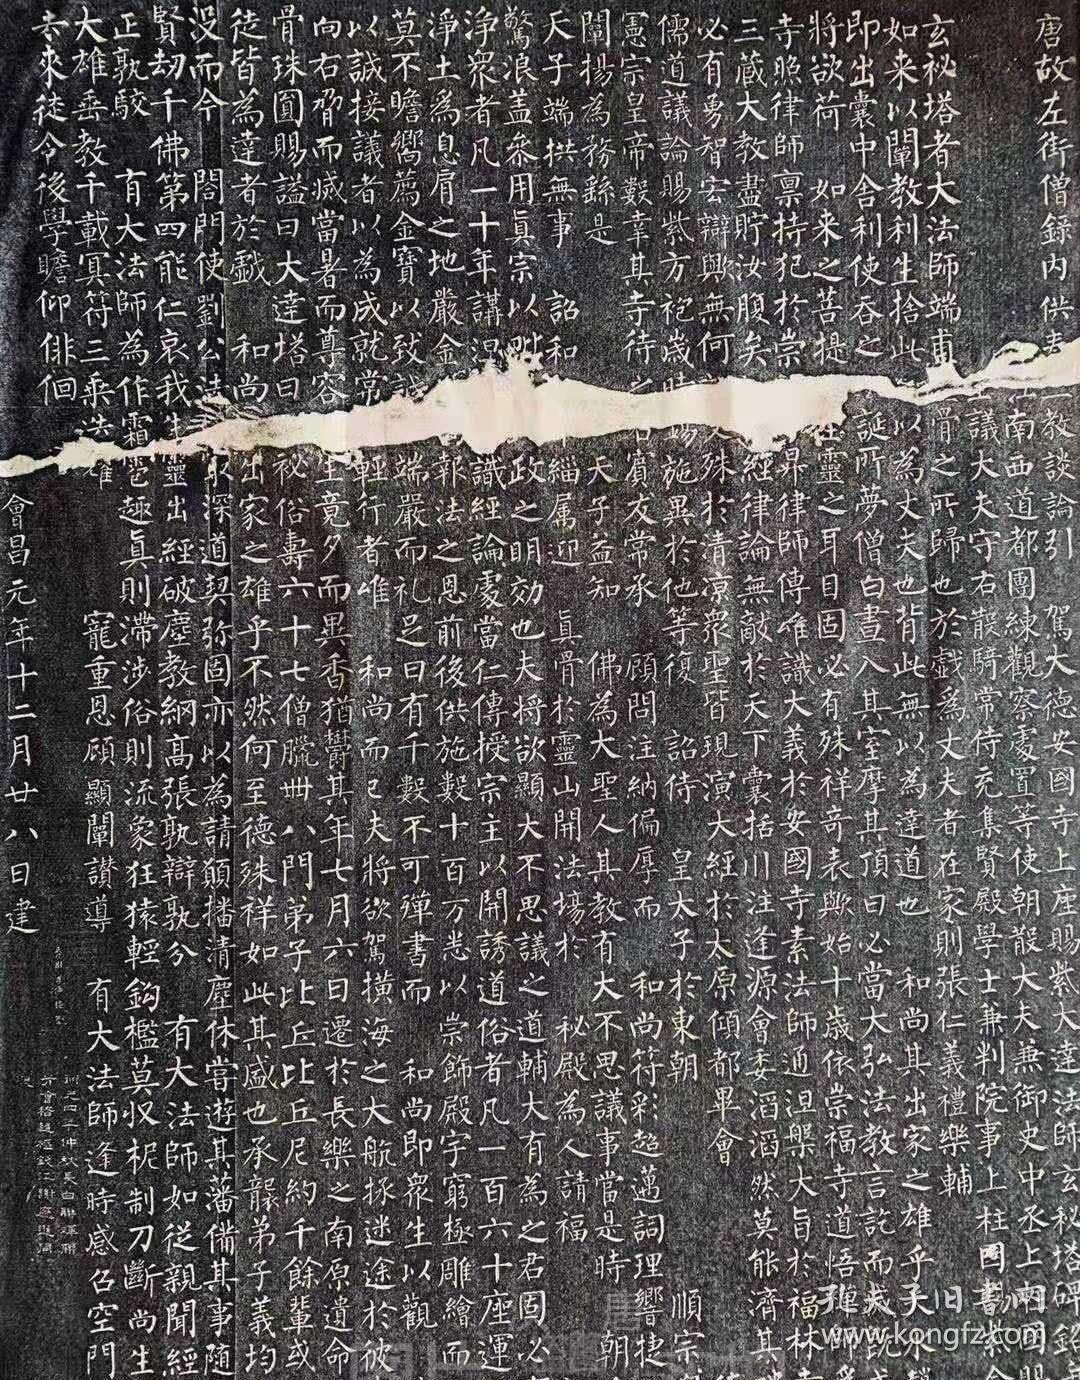 唐故左街僧錄內供奉三教談論引 駕大德安國寺上座賜紫大達法師玄秘塔碑銘
江南西道都團練觀察處置等使朝散大夫兼御史中丞上
議大夫守右散騎常侍充集賢殿學士兼判院事上柱國
玄秘塔者大法師端甫骨之所歸也於戲為丈夫者在家則張仁義禮樂輔
如來以闡教利生捨此以為丈夫也背此無以為達道也 和尚其出家之雄乎天水趙
即出囊中舍利使吞之誕所夢僧白晝入其室摩其頂曰必當大弘法教言訖而滅既成
將欲荷 如來之菩提生靈之耳目固必有殊祥奇表歟始十歲依崇福寺道悟禪師為
寺照律師禀持犯於崇昇律師傳唯識大義於安國寺素法師通涅槃大旨於福林寺
三藏大教盡貯汝腹矣經律論無敵於天下囊括川注逢源會委滔滔然莫能濟其
必有勇智宏辯歟無何文殊於清涼眾聖皆現演大經於太原傾都畢會 德
儒道議論賜紫方袍歲時錫施異於他等復 詔侍 皇太子於東朝 順宗
憲宗皇帝數幸其寺待之若賓友常承 顧問注納偏厚而 和尚符彩超邁詞理響捷
闡揚為務繇是 天子益知 佛為大聖人其教有大不思議事當是時 朝
天子端拱無事 詔和緇属迎 真骨於靈山開法場於 秘殿為人請福
驚浪蓋參用真宗以毗政之明効也夫將欲顯大不思議之道輔大有為之君固必
淨眾者凡一十年講涅識經論處當仁傳授宗主以開誘道俗者凡一百六十座運
淨土為息肩之地嚴金報法之恩前後供施數十百万悉以 崇飾殿宇窮極雕繪而
莫不瞻嚮薦金寶以致誠端嚴而礼足日有千數不可殫書而 和尚即眾生以觀
以誠接議者以為成就常輕行者唯 和尚而已夫將欲駕橫海之大航拯迷途於彼
向右脅而滅當暑而尊容生竟夕而異香猶鬱其年七月六日遷於長樂之南原遺命
骨珠圓賜謚曰大達塔曰秘俗壽六十七僧臘卌八門弟子比丘比丘尼約千餘輩或
徒皆為達者於戲 和尚出家之雄乎不然何至德殊祥如此其盛也承襲弟子義均
没而今 閤門使劉公法深道契弥固亦以為請願播清塵休嘗遊其藩備其事隨
賢劫千佛第四能仁哀我生靈出經破塵教綱高張孰辯孰分 有大法師如從親聞經
正孰駮 有大法師為作霜雹趣真則滯涉俗則流象狂猿輕鈎檻莫収柅制刀斷尚生
大雄垂教千載冥符三乘迭耀 寵重恩顧顯闡讚導 有大法師逢時感召空門
去來徒令後學瞻仰徘徊
會昌元年十二月廿八日建
孔夫子旧书网
www.kongfz.com